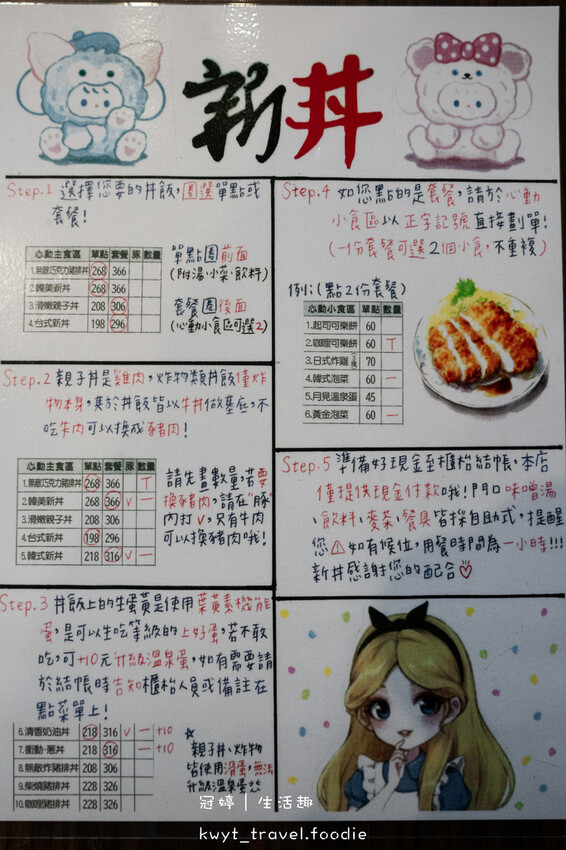 新丼
Step.1 選擇您要的丼飯,圈選單點或
套餐!
心動主食區 單點 套餐 豚 數量
1.無敵巧克力豬排丼 268 366
2.韓美新丼 268 366
3.滑嫩親子丼 208 306
4.台式新丼 198 296
單點圈前面
(附湯、小菜、飲料)
套餐圈後面
(心動小食區可選2)
Step.2 親子丼是雞肉,炸物類丼飯僅炸
物本身,其於丼飯皆以牛丼做基底,不
吃牛肉可以換成豬肉!
心動主食區 單點 套餐 豚 數量
1.無敵巧克力豬排丼 268 366 T
2.韓美新丼 268 366 V 一
3.滑嫩親子丼 208 306
4.台式新丼 198 296
5.韓式新丼 218 316 V 一
請先畫數量,若要
換豬肉,請在"豚"
內打V,只有牛肉
可以換豬肉哦!
Step.3 丼飯上的生蛋黃是使用葉黃素機能
蛋,是可以生吃等級的上好蛋,若不敢
吃,可+10元升級溫泉蛋,如有需要請
於結帳時告知櫃枱人員或備註在
點菜單上!
6.清香奶油丼 218 316 V 一 +10
7.衝動-蔥丼 218 316 一 +10
8.無敵炸豬排丼 208 306
9.柴燒豬排丼 228 326
10.咖哩豬排丼 228 326
☆
親子丼、炸物
皆使用滑蛋,無法
升級溫泉蛋
Step.4 如您點的是套餐,請於心動
小食區以正字記號直接劃單!
(一份套餐可選2個小食,不重複)
例:(點2份套餐)
心動小食區 單點 數量
1.起司可樂餅 60
2.咖哩可樂餅 60 T
3.日式炸雞 70
4.韓式泡菜 60 一
5.月見溫泉蛋 45
6.黃金泡菜 60 一
Step.5 準備好現金至櫃枱結帳,本店
僅提供現金付款哦!門口味噌湯
、飲料、麥茶、餐具皆採自助式,提醒
您⚠如有候位,用餐時間為一小時!!!
新丼感謝您的配合♡
冠婷│生活趣
kwyt_travel.foodie